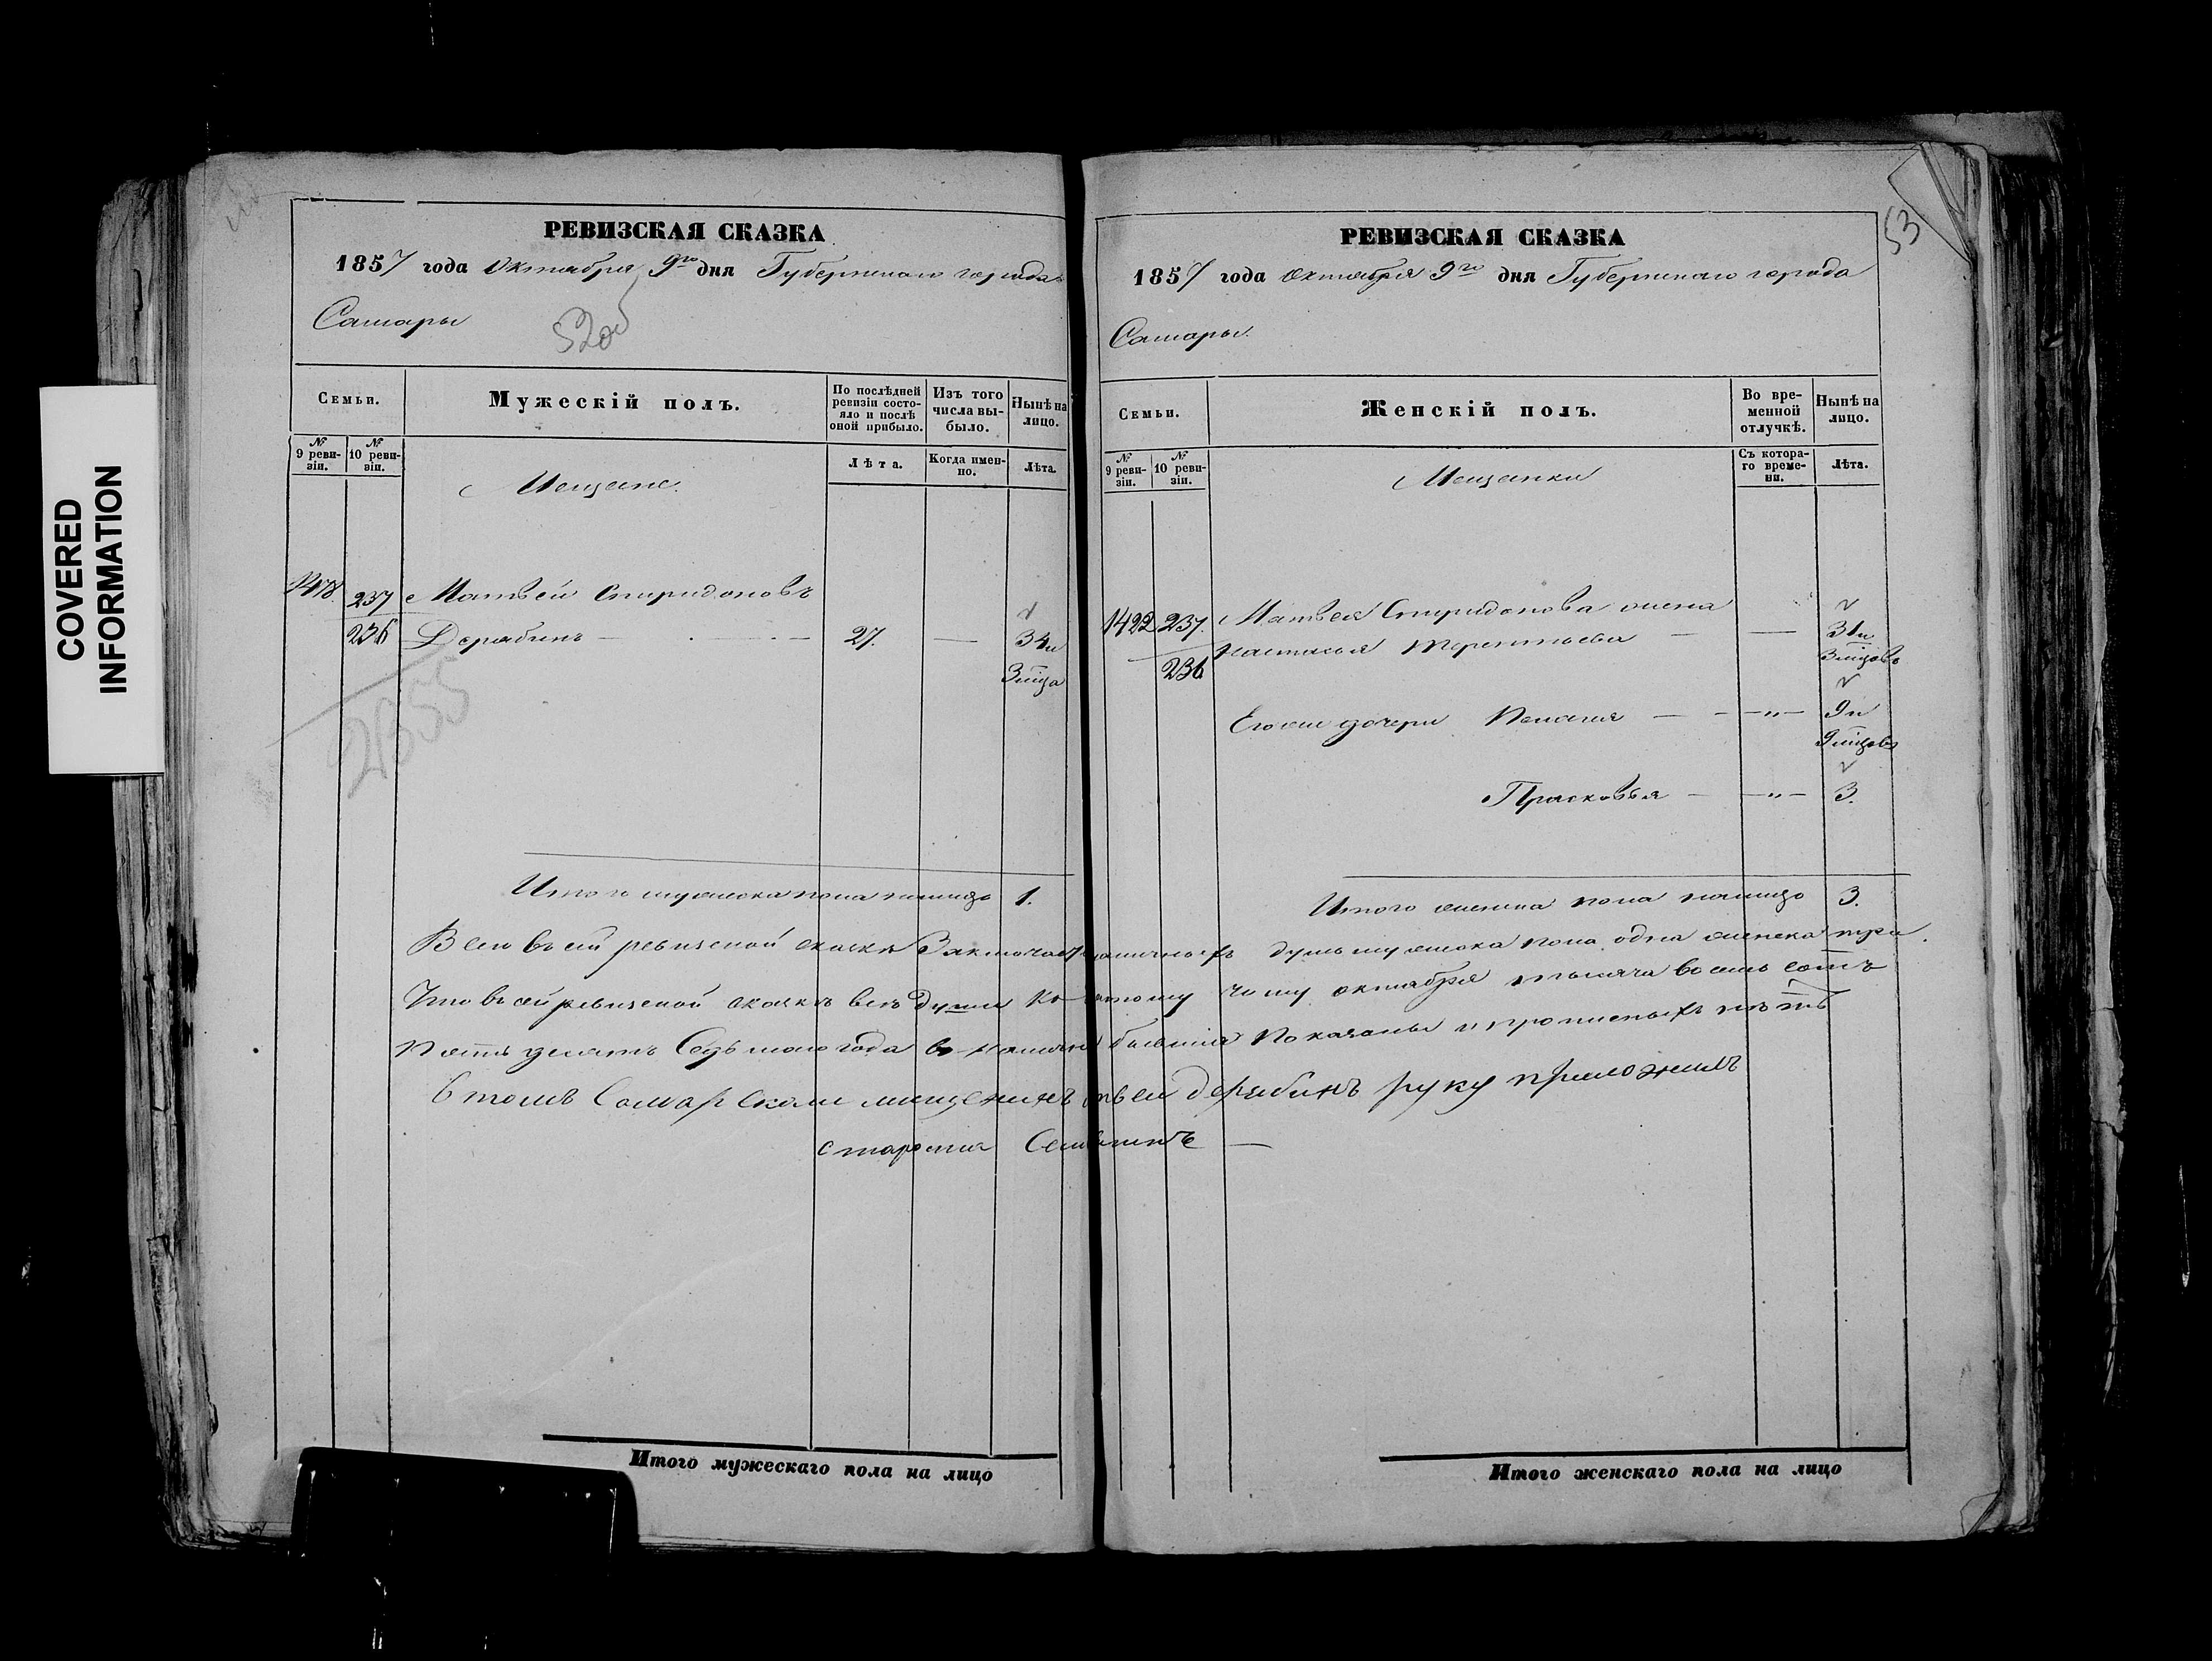 COVERED
INFORMATION
РЕВИЗСКАЯ СКАЗКА
1857 года Октября 9го дня Губернскаго города
Самары
52об
Семьи.
Мужескій полъ.
По послѣдней ревизіи состояло и послѣ оной прибыло.
Изъ того числа выбыло.
Нынѣ на лицо.
№ 9 ревизіи.
№ 10 ревизіи.
Лѣта.
Когда именно.
Лѣта.
Мещане.
237 Матвей Спиридоновъ
236 Дерябинъ — 27. — 34 и
3 мѣца
2355
Итого мужеска пола налицо 1.
РЕВИЗСКАЯ СКАЗКА
53
1857 года Октября 9го дня Губернскаго города
Самары.
Семьи.
Женскій полъ.
Во временной отлучкѣ.
Нынѣ на лицо.
№ 9 ревизіи.
№ 10 ревизіи.
Съ котораго времени.
Лѣта.
Мещанки
1422 237. Матвея Спиридонова жена
Настасья Терентьева — — 31 и
236 3 мѣцовъ
Его же дочери Пелагия — — " — 9 и
9 мѣцовъ
Прасковья — — " — 3.
Итого женска пола налицо 3.
Всего въ сей ревизской сказкѣ Заключается наличныхъ душъ мужеска пола одна женска три.
Что въ сей ревизской сказкѣ все души къ чему октября тысяча восемь сотъ
пятьдесятъ Седьмого года въ наличіи бывшия показаны и прописныхъ нѣтъ
В томъ Самарской мещенинъ дерябинъ руку приложилъ
староста
Итого мужескаго пола на лицо
Итого женскаго пола на лицо